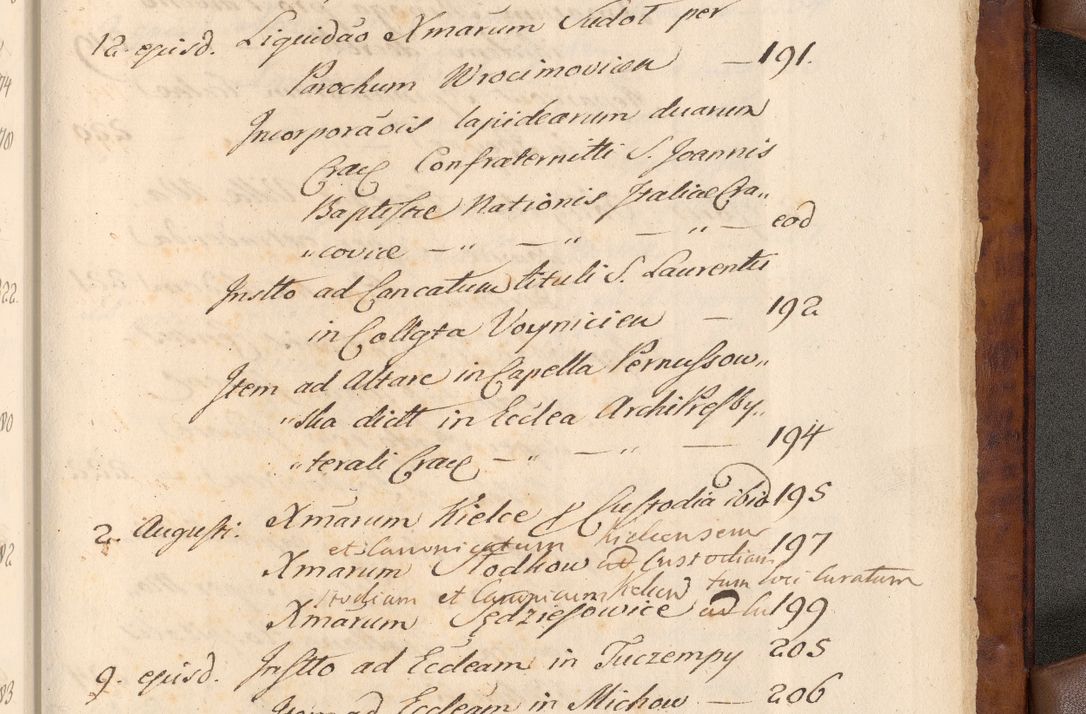 12. ejusd. Liquidaõ Xmarum Sudoł per
Parochum Wrocimovicen — 191.
Incorporaõis lapidearum duarum
Crac Confraternitti S. Joannis
Baptistae Nationis Italiae Cra„
„coviae — „ — „ — „ — eod
Instto ad Cancatum tituli S. Laurentii
in Collgta Voynicien — 192
Item ad Altare in Capella Pernussow„
„ska dictt in Ecclea ArchiPresby„
„terali Crac — „ — „ — 194
2. Augusti. Xmarum Kielce & Custodia ibid 195
et Canonicatum Kielcensem
Xmarum Stodkow ad Custodiam 197
stodiam et Canonicum Kielcen tum loci Curatum
Xmarum Sędziejowice ad Cu 199
9. ejusd. Instto ad Eccleam in Tuczempy 205
Item ad Eccleam in Michow — 206
22.
80
82
83